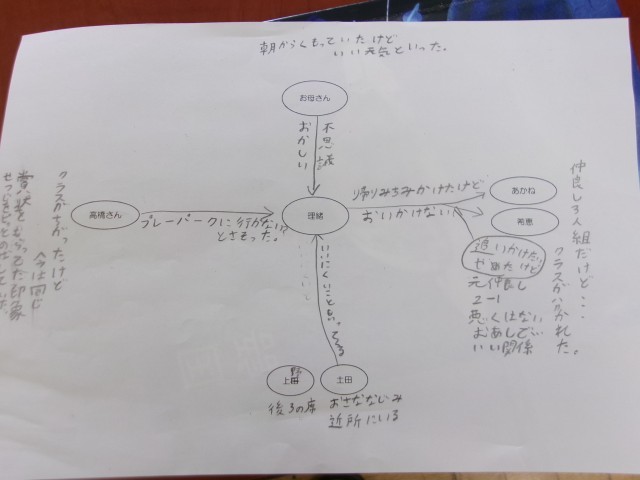 朝からくもっていたけど
いい天気といった。
お母さん
不思議
おかしい
高橋さん
プレーパークに行かない?
とさそった。
理緒
帰りみちみかけたけど
おいかけない
あかね
希恵
追いかけたい
や
たけど
元仲良し
2-1
悪くはない
いい関係
仲良し3人組だけど…
クラスが
かれた。
クラスちがったけど
今は同じ
賞状をもらってた印象
いにくいこと言ってくる
上野
土田
後ろの席
おさななじみ
近所にいる